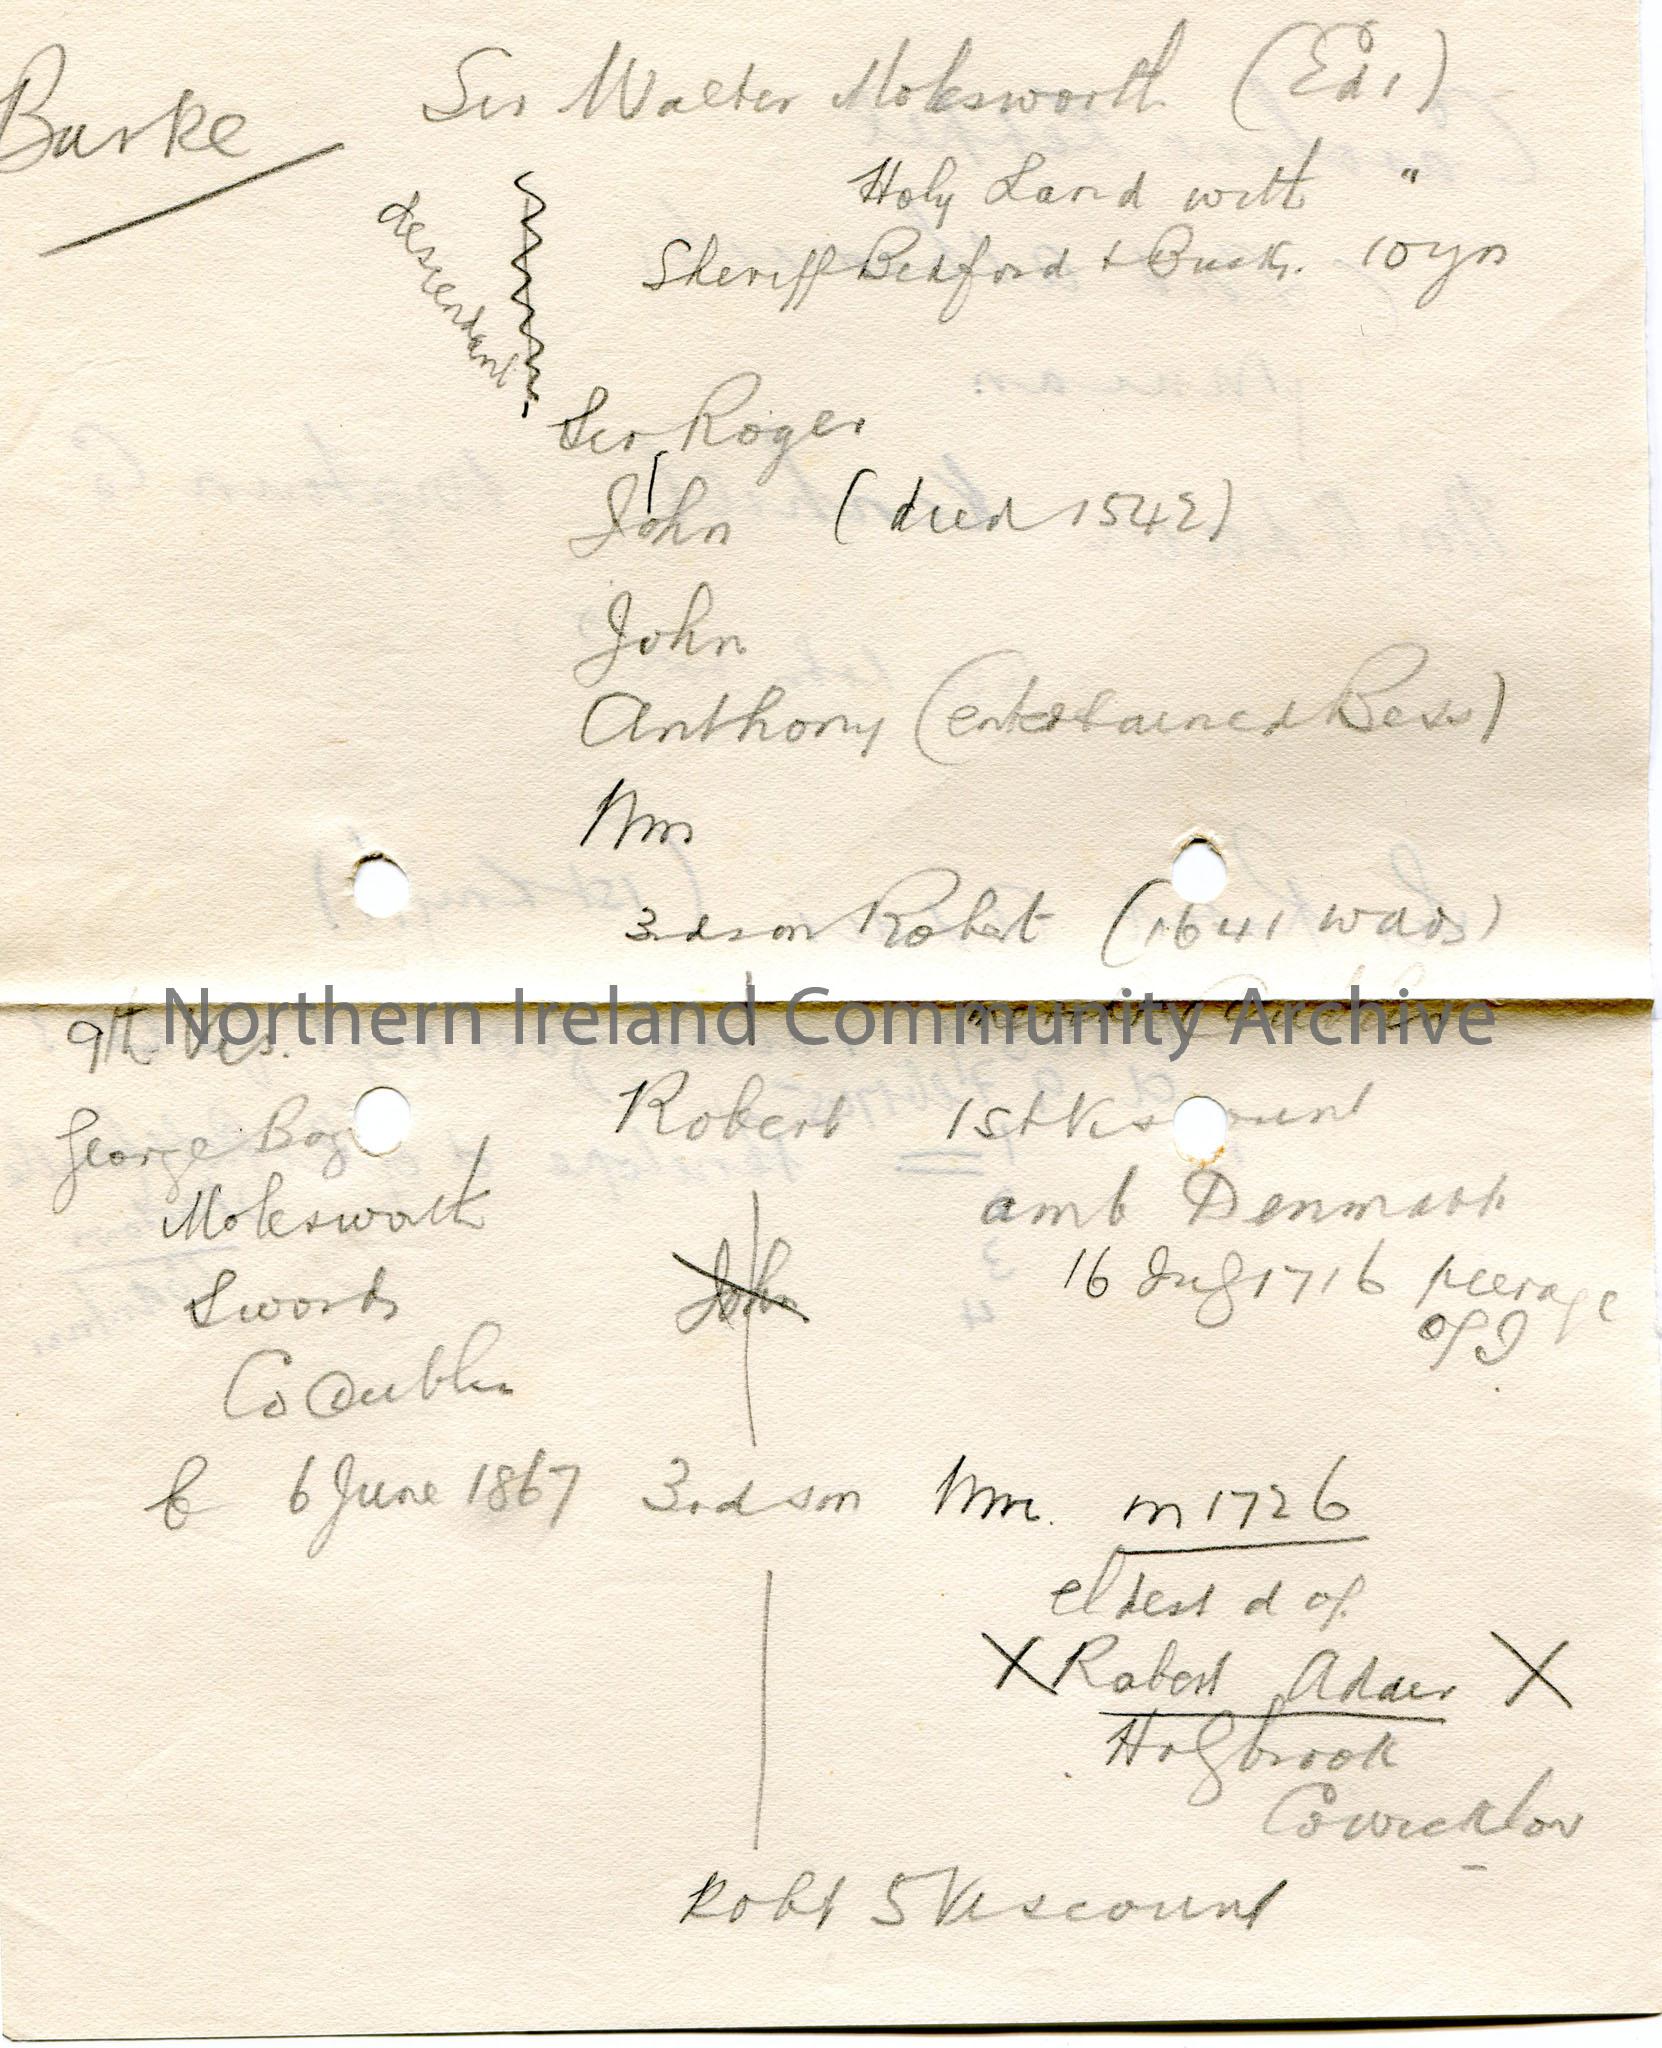 Burke
Sir Walter Molesworth (Ed 1)
Holy Land with "
Sheriff Bedford & Bucks. 10 yrs
descendant
Sir Roger
John (died 1542)
John
Anthony (entertained Bess)
Wm
3rd son Robert (1641 wars)
Northern Ireland Community Archive
merchant Dublin
9th Vis.
George Bag
Molesworth
Swords
Co Dublin
b 6 June 1867
Robert 1st Viscount
amb Denmark
16 July 1716 peerage
of I
John
3rd son Wm. m 1726
eldest d of
X Robert Adair X
Hollybrook
Co Wicklow
Robt 5 Viscount